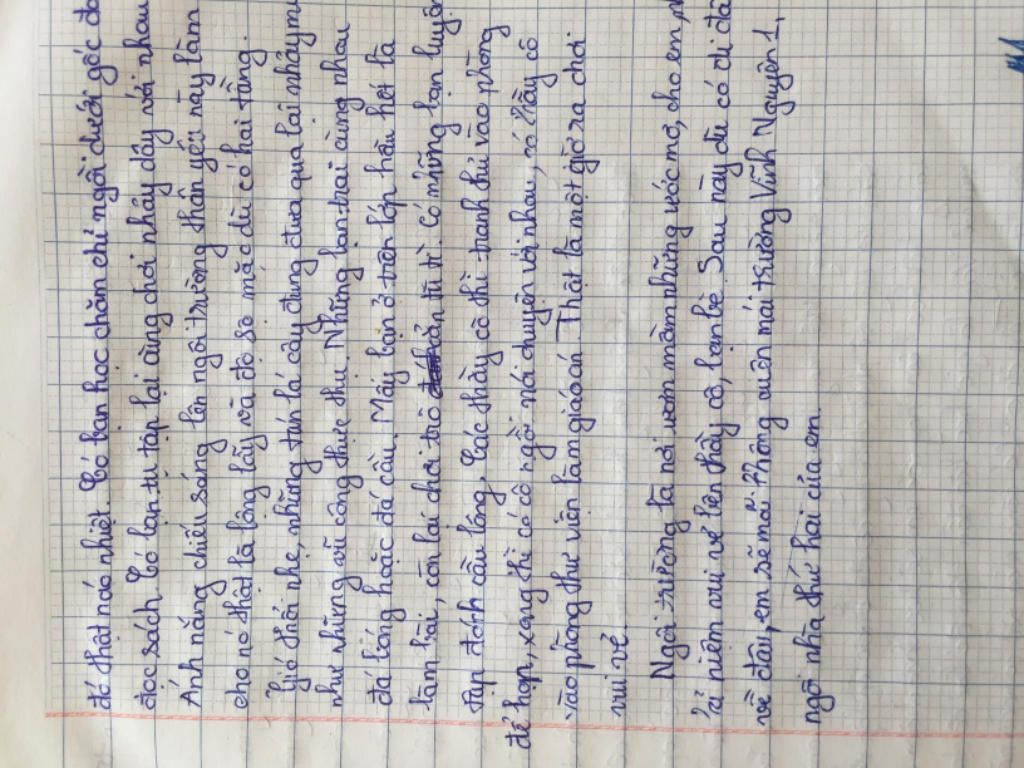 đó thật náo nhiệt. Có bạn học chăm chỉ ngồi dưới gốc
đọc sách. Có bạn tụ tập lại cùng chơi nhảy dây với nhau
Ánh nắng chiếu sáng lên ngôi trường thân yêu này làm
cho nó thật là lộng lẫy và đồ sộ mặc dù có hai tầng.
Gió thổi nhẹ, những tán lá cây đung đưa qua lại nhảy
như những vũ công thực thụ. Những bạn trai cùng nhau
đá bóng hoặc đá cầu. Mấy bạn ở trên lớp hầu hết là
làm bài, còn lại chơi trò oẳn tù tì. Có những bạn luyện
tập đánh cầu lông. Các thầy cô thì tranh thủ vào phòng
để họp, xong thì có cô ngồi nói chuyện với nhau, có thầy cô
vào phòng thư viện làm giáo án. Thật là một giờ ra chơi
vui vẻ.
Ngôi trường là nơi ươm mầm những ước mơ, cho em
niềm vui về bên thầy cô, bạn bè. Sau này dù có đi
về đâu, em sẽ mãi không quên mái trường Vĩnh Nguyên 1,
ngôi nhà thứ hai của em.